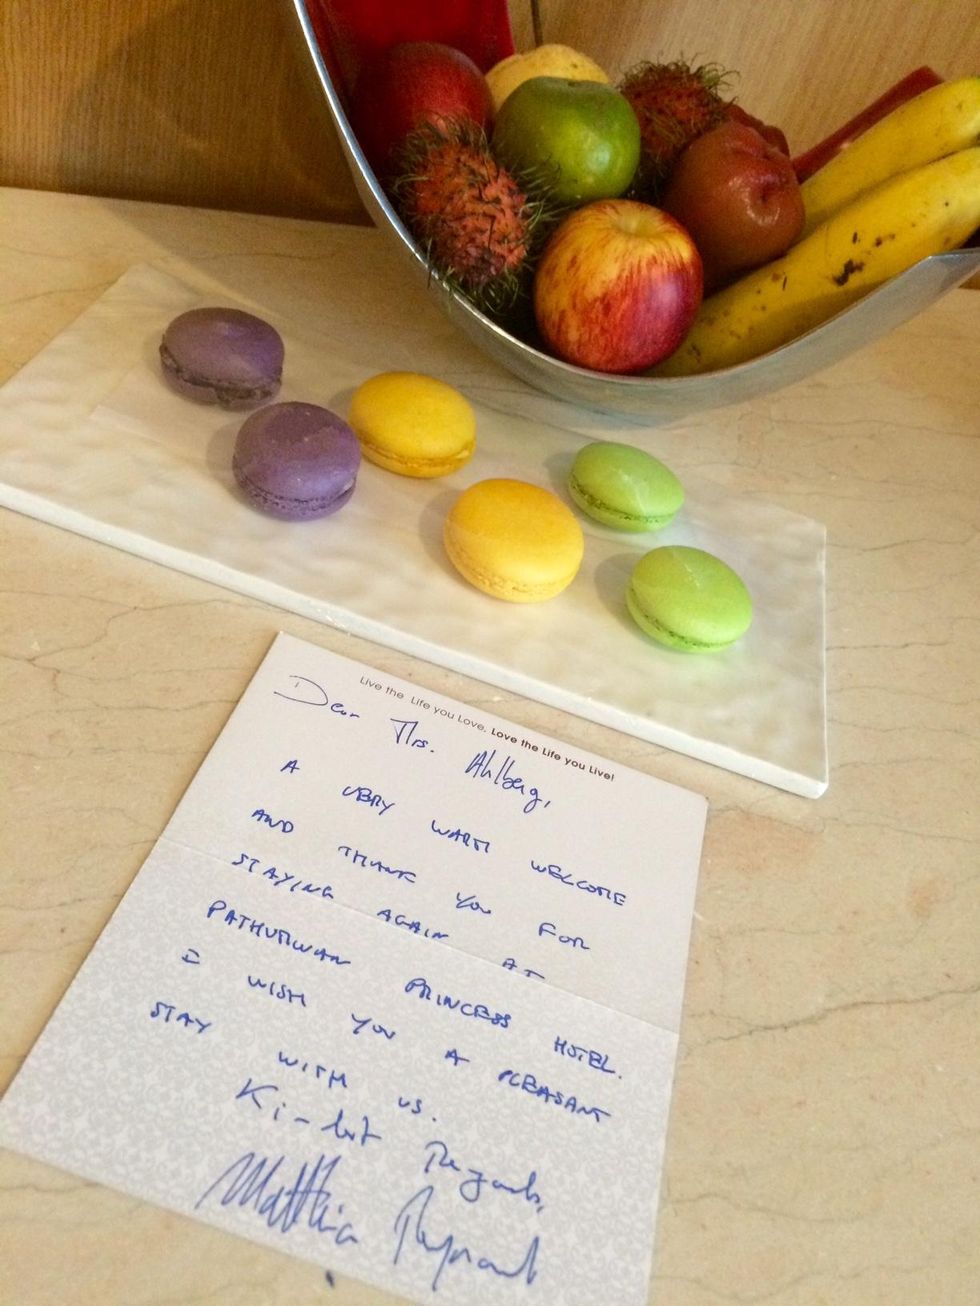 Live the Life you Love, Love the Life you Live!
Dear Mrs. Ahlberg,
A VERY WARM WELCOME
AND THANK YOU FOR
STAYING AGAIN AT
PATHUMWAN PRINCESS HOTEL.
I WISH YOU A PLEASANT
STAY WITH US.
Kindest Regards,